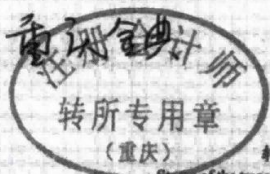 重庆金典
注册会计师
转所专用章
（重庆）